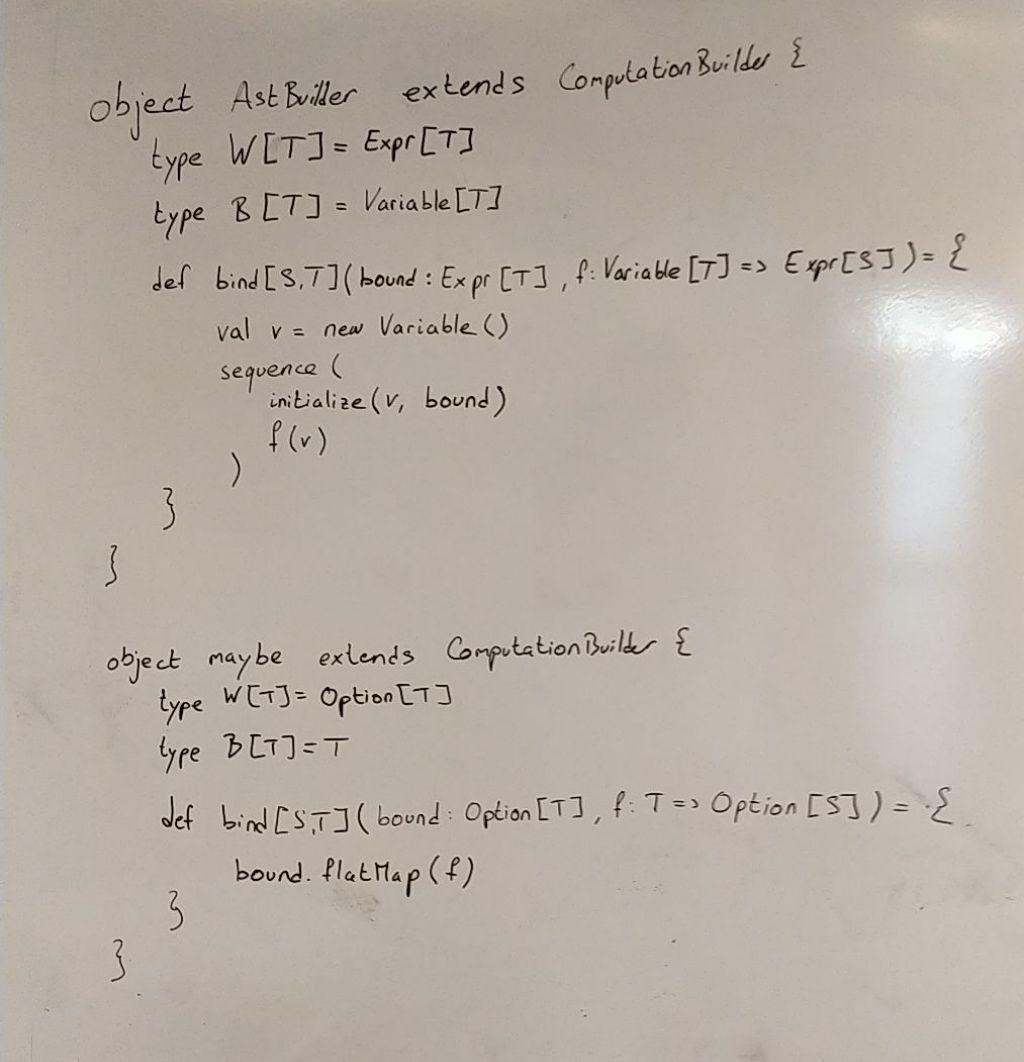 object AstBuilder extends ComputationBuilder {
type W[T] = Expr[T]
type B[T] = Variable[T]
def bind[S,T](bound: Expr[T], f: Variable[T] => Expr[S]) = {
val v = new Variable()
sequence (
initialize(v, bound)
f(v)
)
}
}
object maybe extends ComputationBuilder {
type W[T] = Option[T]
type B[T] = T
def bind[S,T](bound: Option[T], f: T => Option[S]) = {
bound.flatMap(f)
}
}